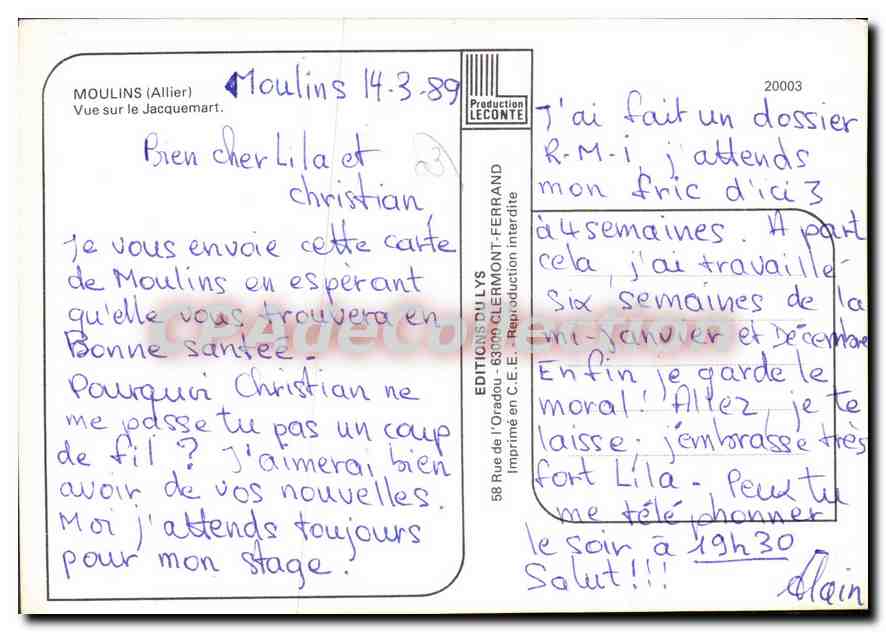 MOULINS (Allier)
Vue sur le Jacquemart.
Moulins 14-3-89
Bien cher Lila et
christian,
Je vous envoie cette carte
de Moulins en espèrant
qu'elle vous trouvera en
Bonne santée.
Pourquoi Christian ne
me passe tu pas un coup
de fil ? J'aimerai bien
avoir de vos nouvelles.
Moi j'attends toujours
pour mon stage.
Production
LECONTE
EDITIONS DU LYS
58 Rue de l'Oradou - 63000 CLERMONT-FERRAND
Imprimé en C.E.E. - Reproduction interdite
20003
J'ai fait un dossier
R-M-i, j'attends
mon fric d'ici 3
à 4 semaines. A part
cela, j'ai travaillé
six semaines de la
mi-janvier et Décembre
Enfin je garde le
moral! Allez, je te
laisse; j'embrasse très
fort Lila - Peux tu
me téléphonner
le soir à 19h30
Salut!!!
Alain
CPAdeCollection